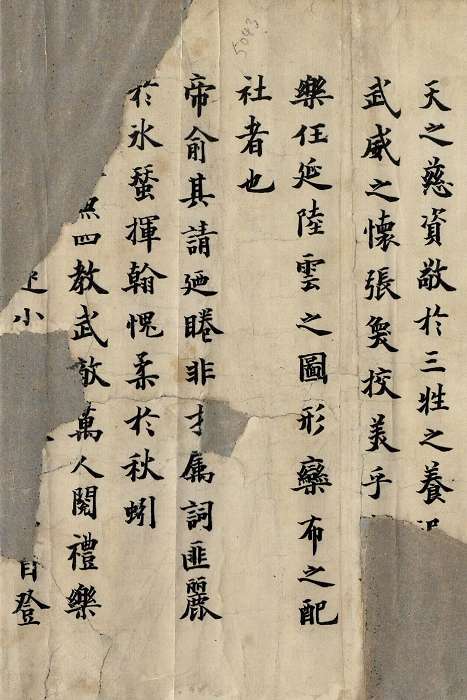 5043
天之慈資敬於三牲之養
武威之懷張奐挍美乎
樂任延陸雲之圖形欒布之配
社者也
帝俞其請廼睠非才属詞匪麗
於氷蚕揮翰愧柔於秋蚓
四教武敵萬人閱禮樂
小
自登